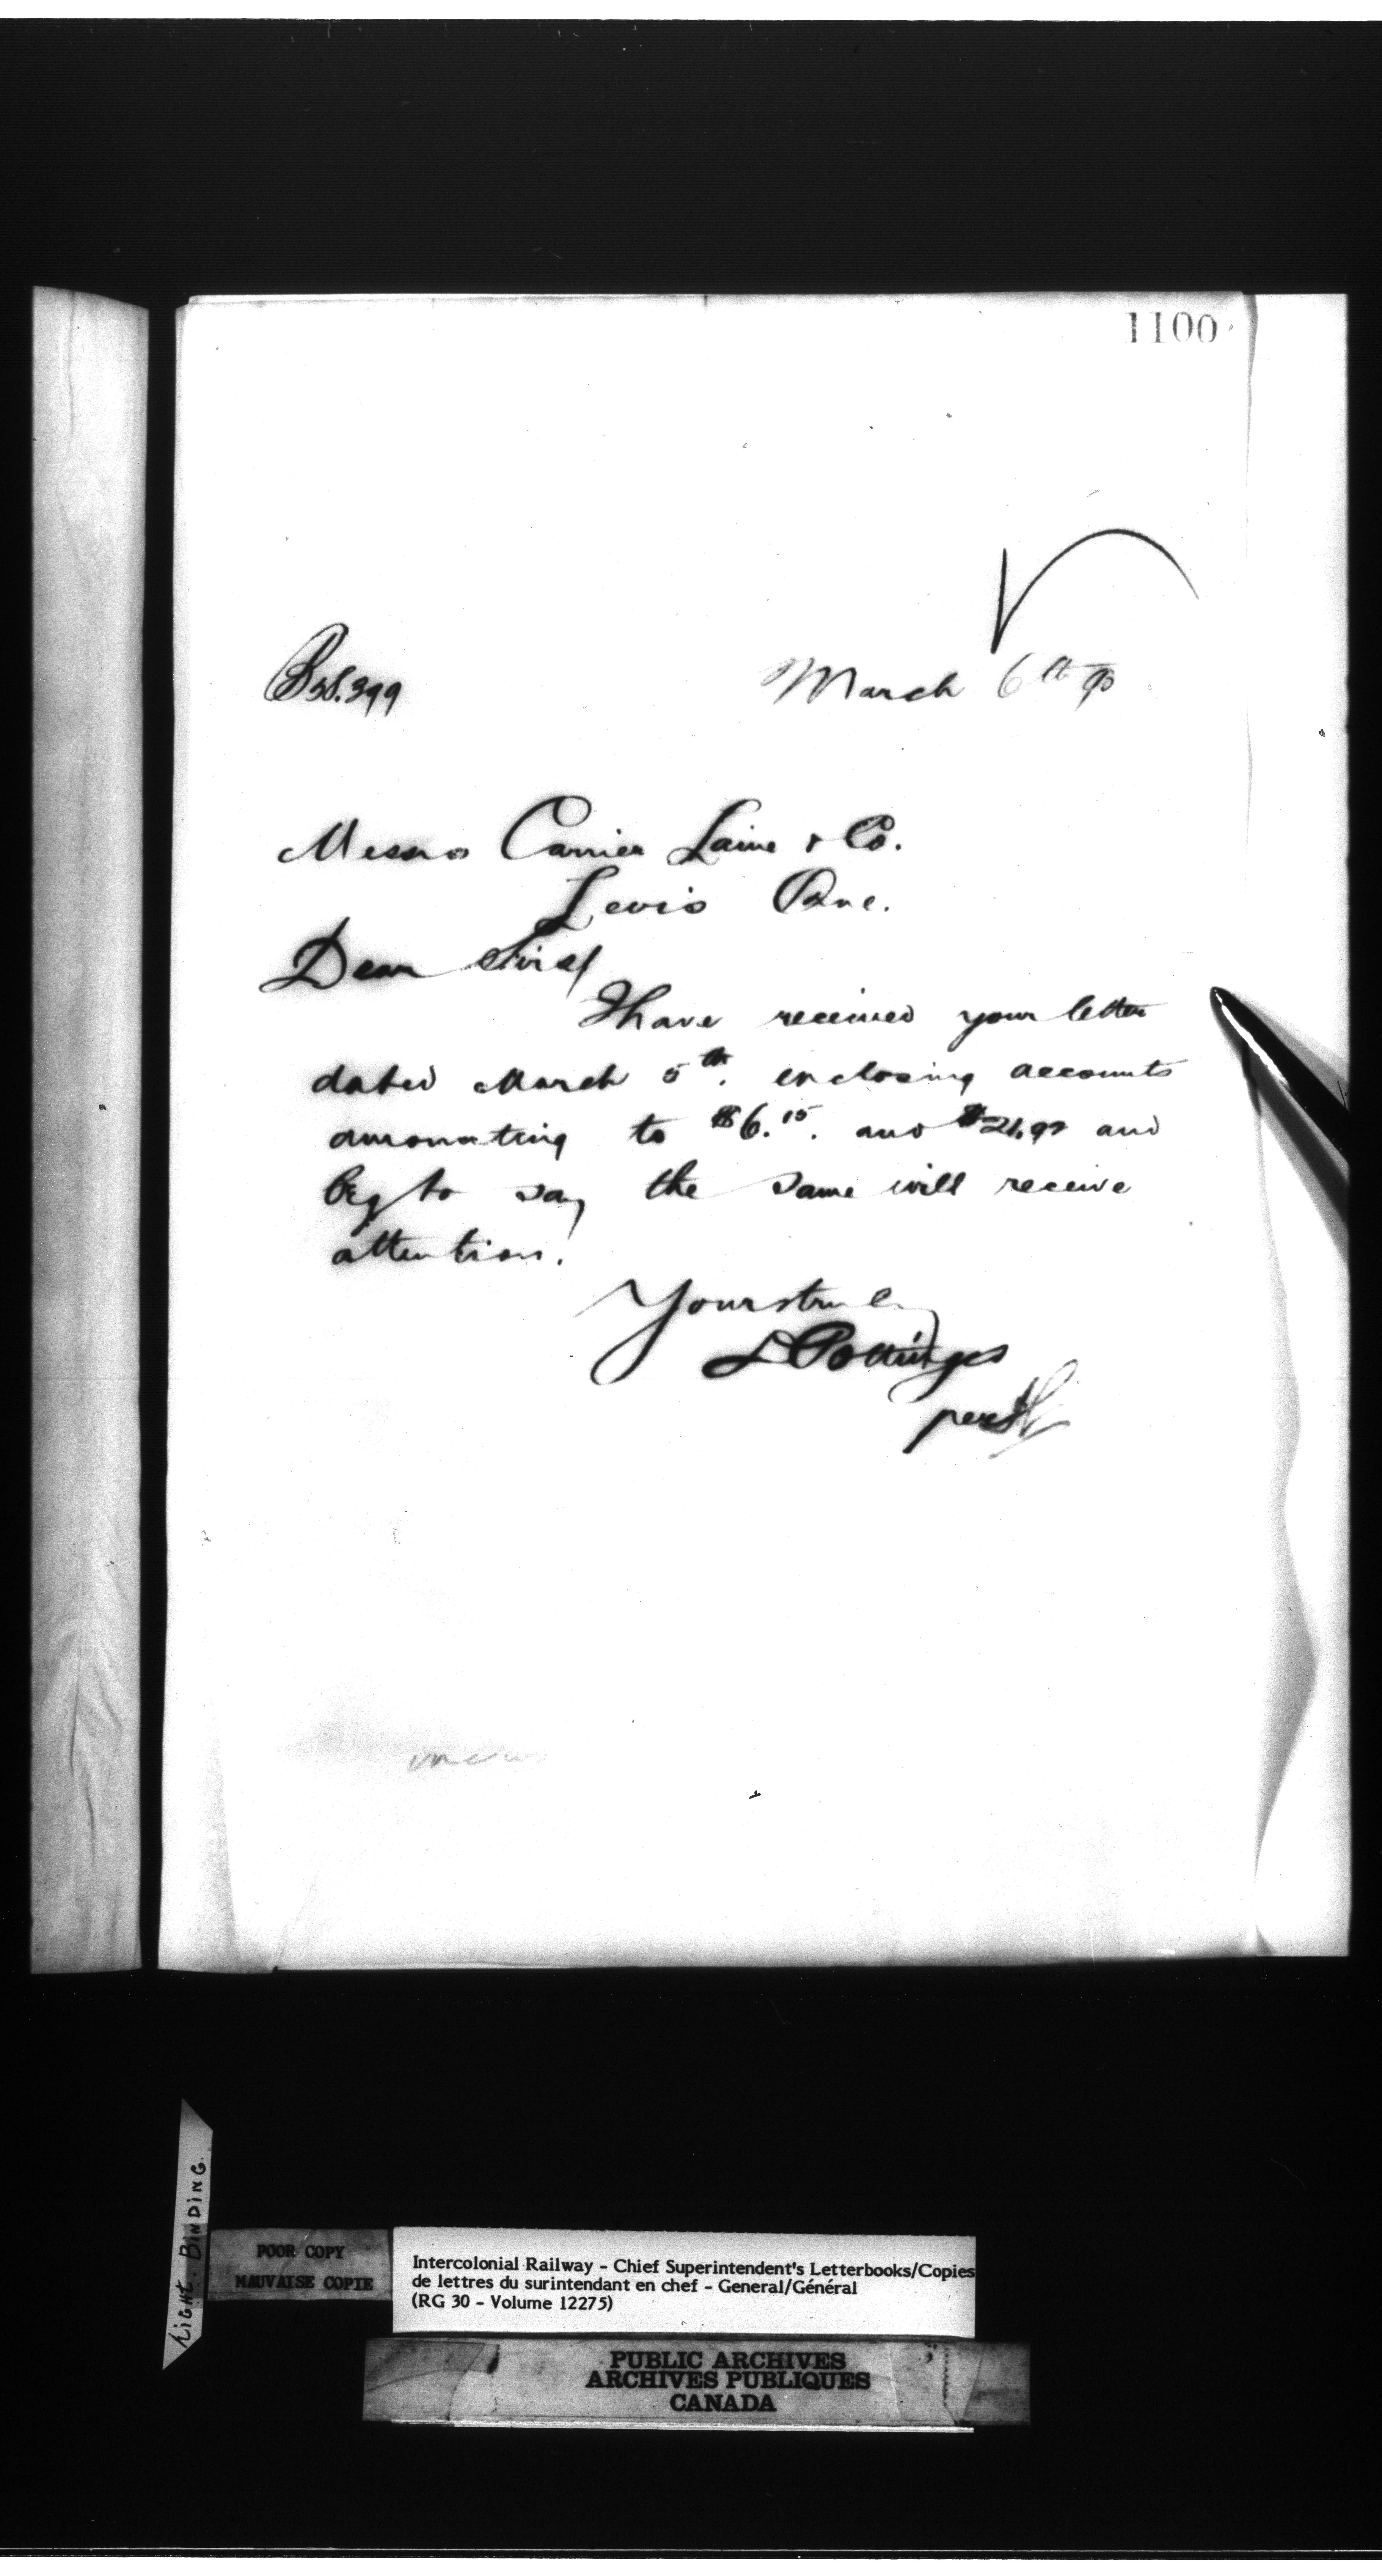 1100
B 38.399
March 6th 90
Messrs Carrier Laine & Co.
Levis Que.
Dear Sirs
I have received your letter
dated March 5th. enclosing accounts
amounting to $6.15. and and
beg to say the same will receive
attention.
Yours truly
D Pottinger
per
LIGHT BINDING.
POOR COPY
MAUVAISE COPIE
Intercolonial Railway - Chief Superintendent's Letterbooks/Copies
de lettres du surintendant en chef - General/Général
(RG 30 - Volume 12275)
PUBLIC ARCHIVES
ARCHIVES PUBLIQUES
CANADA